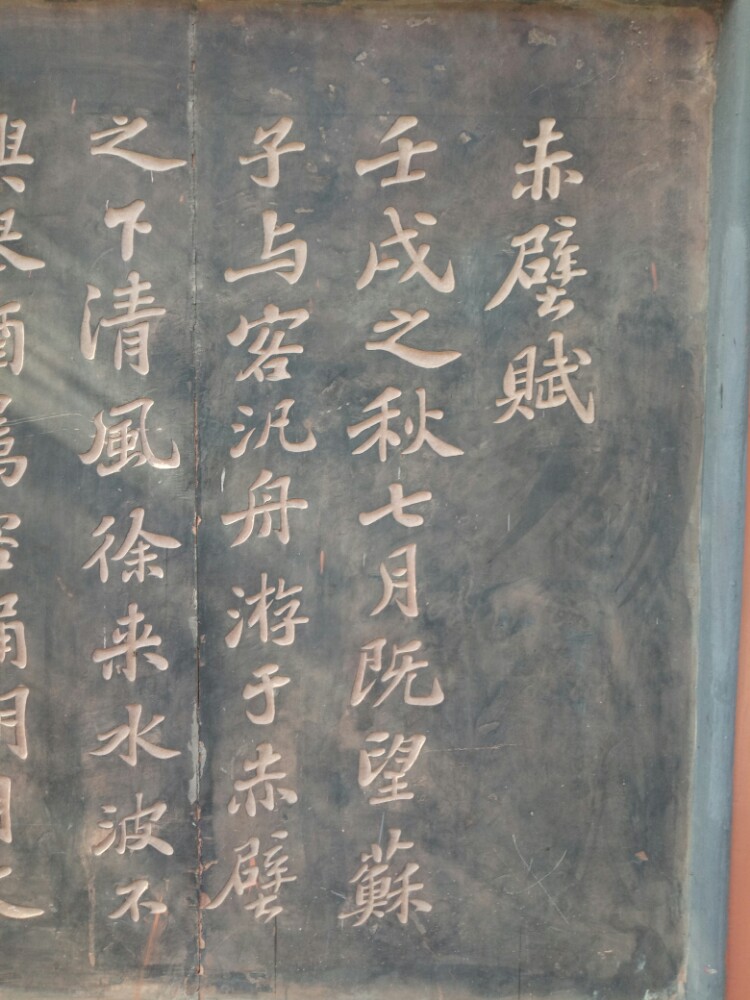 赤壁賦
壬戌之秋七月既望蘇
子与客汎舟游于赤壁
之下清風徐来水波不